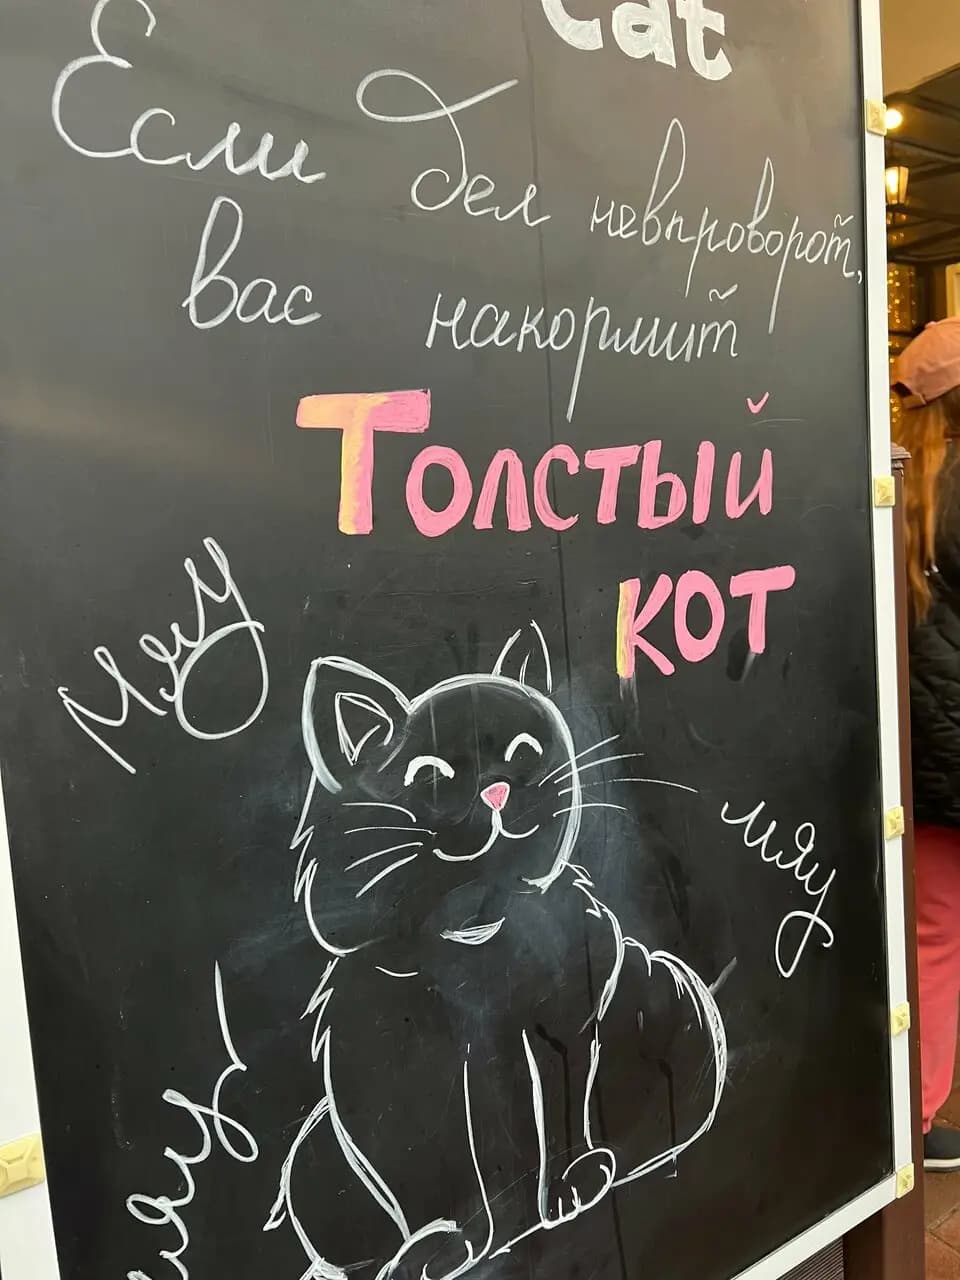 Cat
Если дел невпроворот,
вас накормит
Толстый
кот
Мяу
мяу
мяу